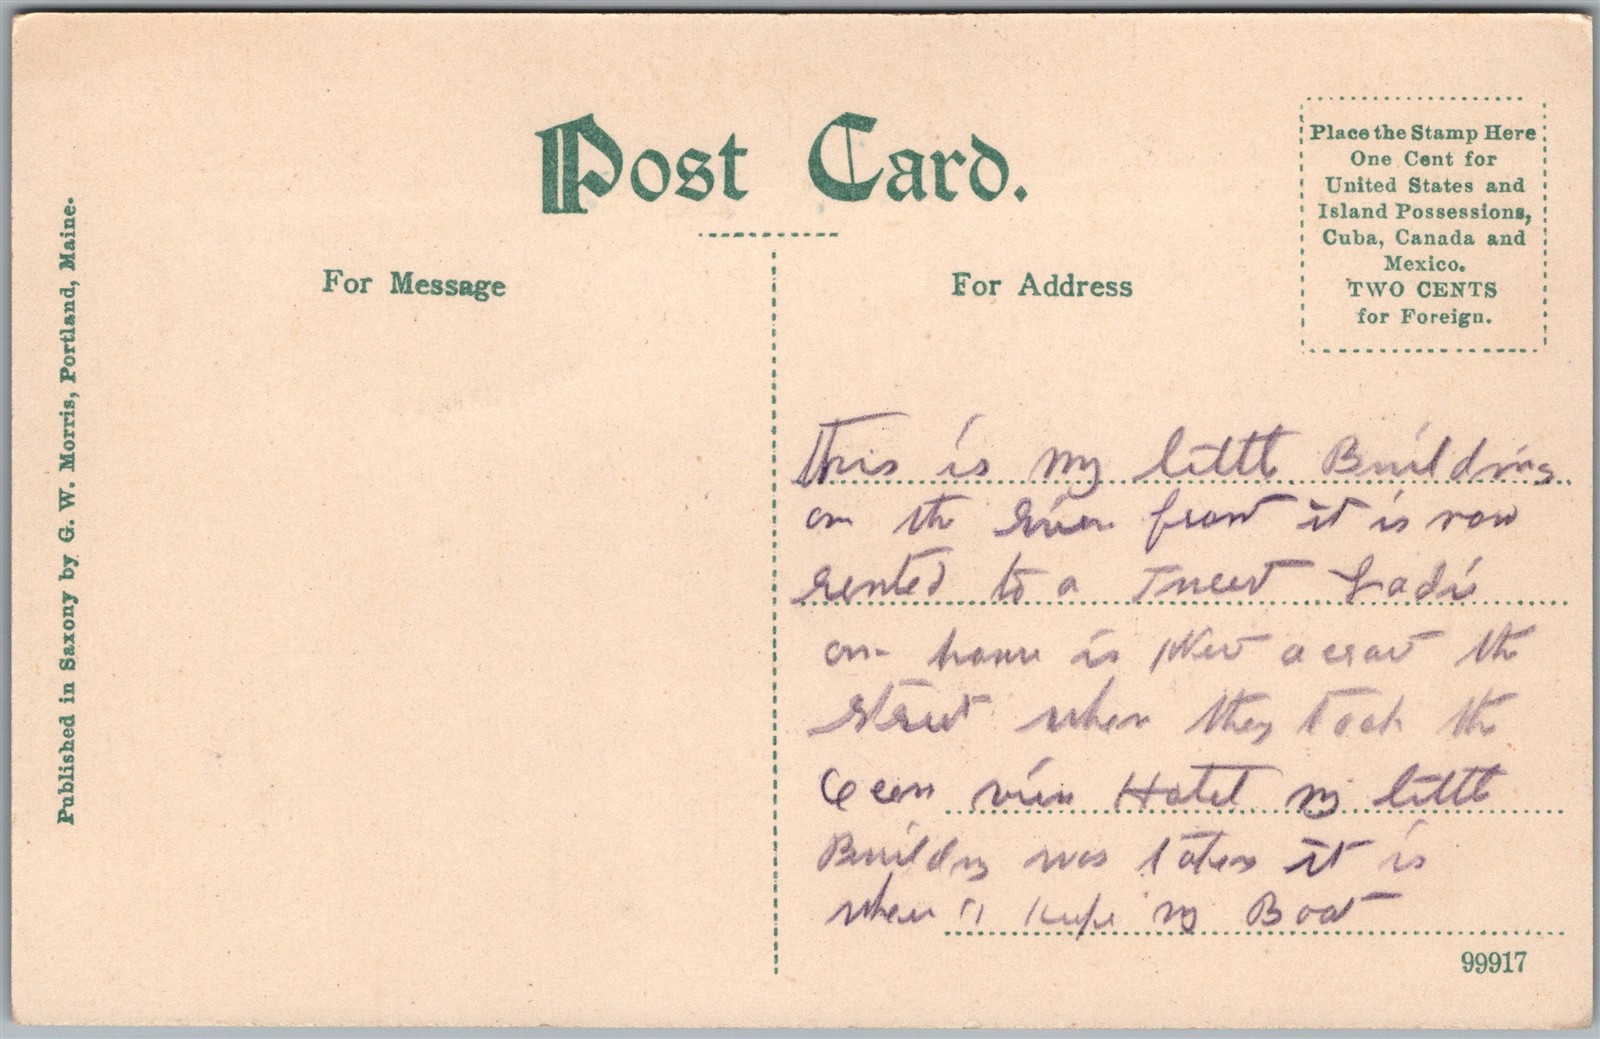 Post Card.
For Message
For Address
Place the Stamp Here
One Cent for
United States and
Island Possessions,
Cuba, Canada and
Mexico.
TWO CENTS
for Foreign.
Published in Saxony by G. W. Morris, Portland, Maine.
This is my little Building
on the River front it is now
rented to a Ladi
our home is across the
Street when they took the
Ocean view Hotel my little
Building was taken it is
where I keepe my Boat
99917